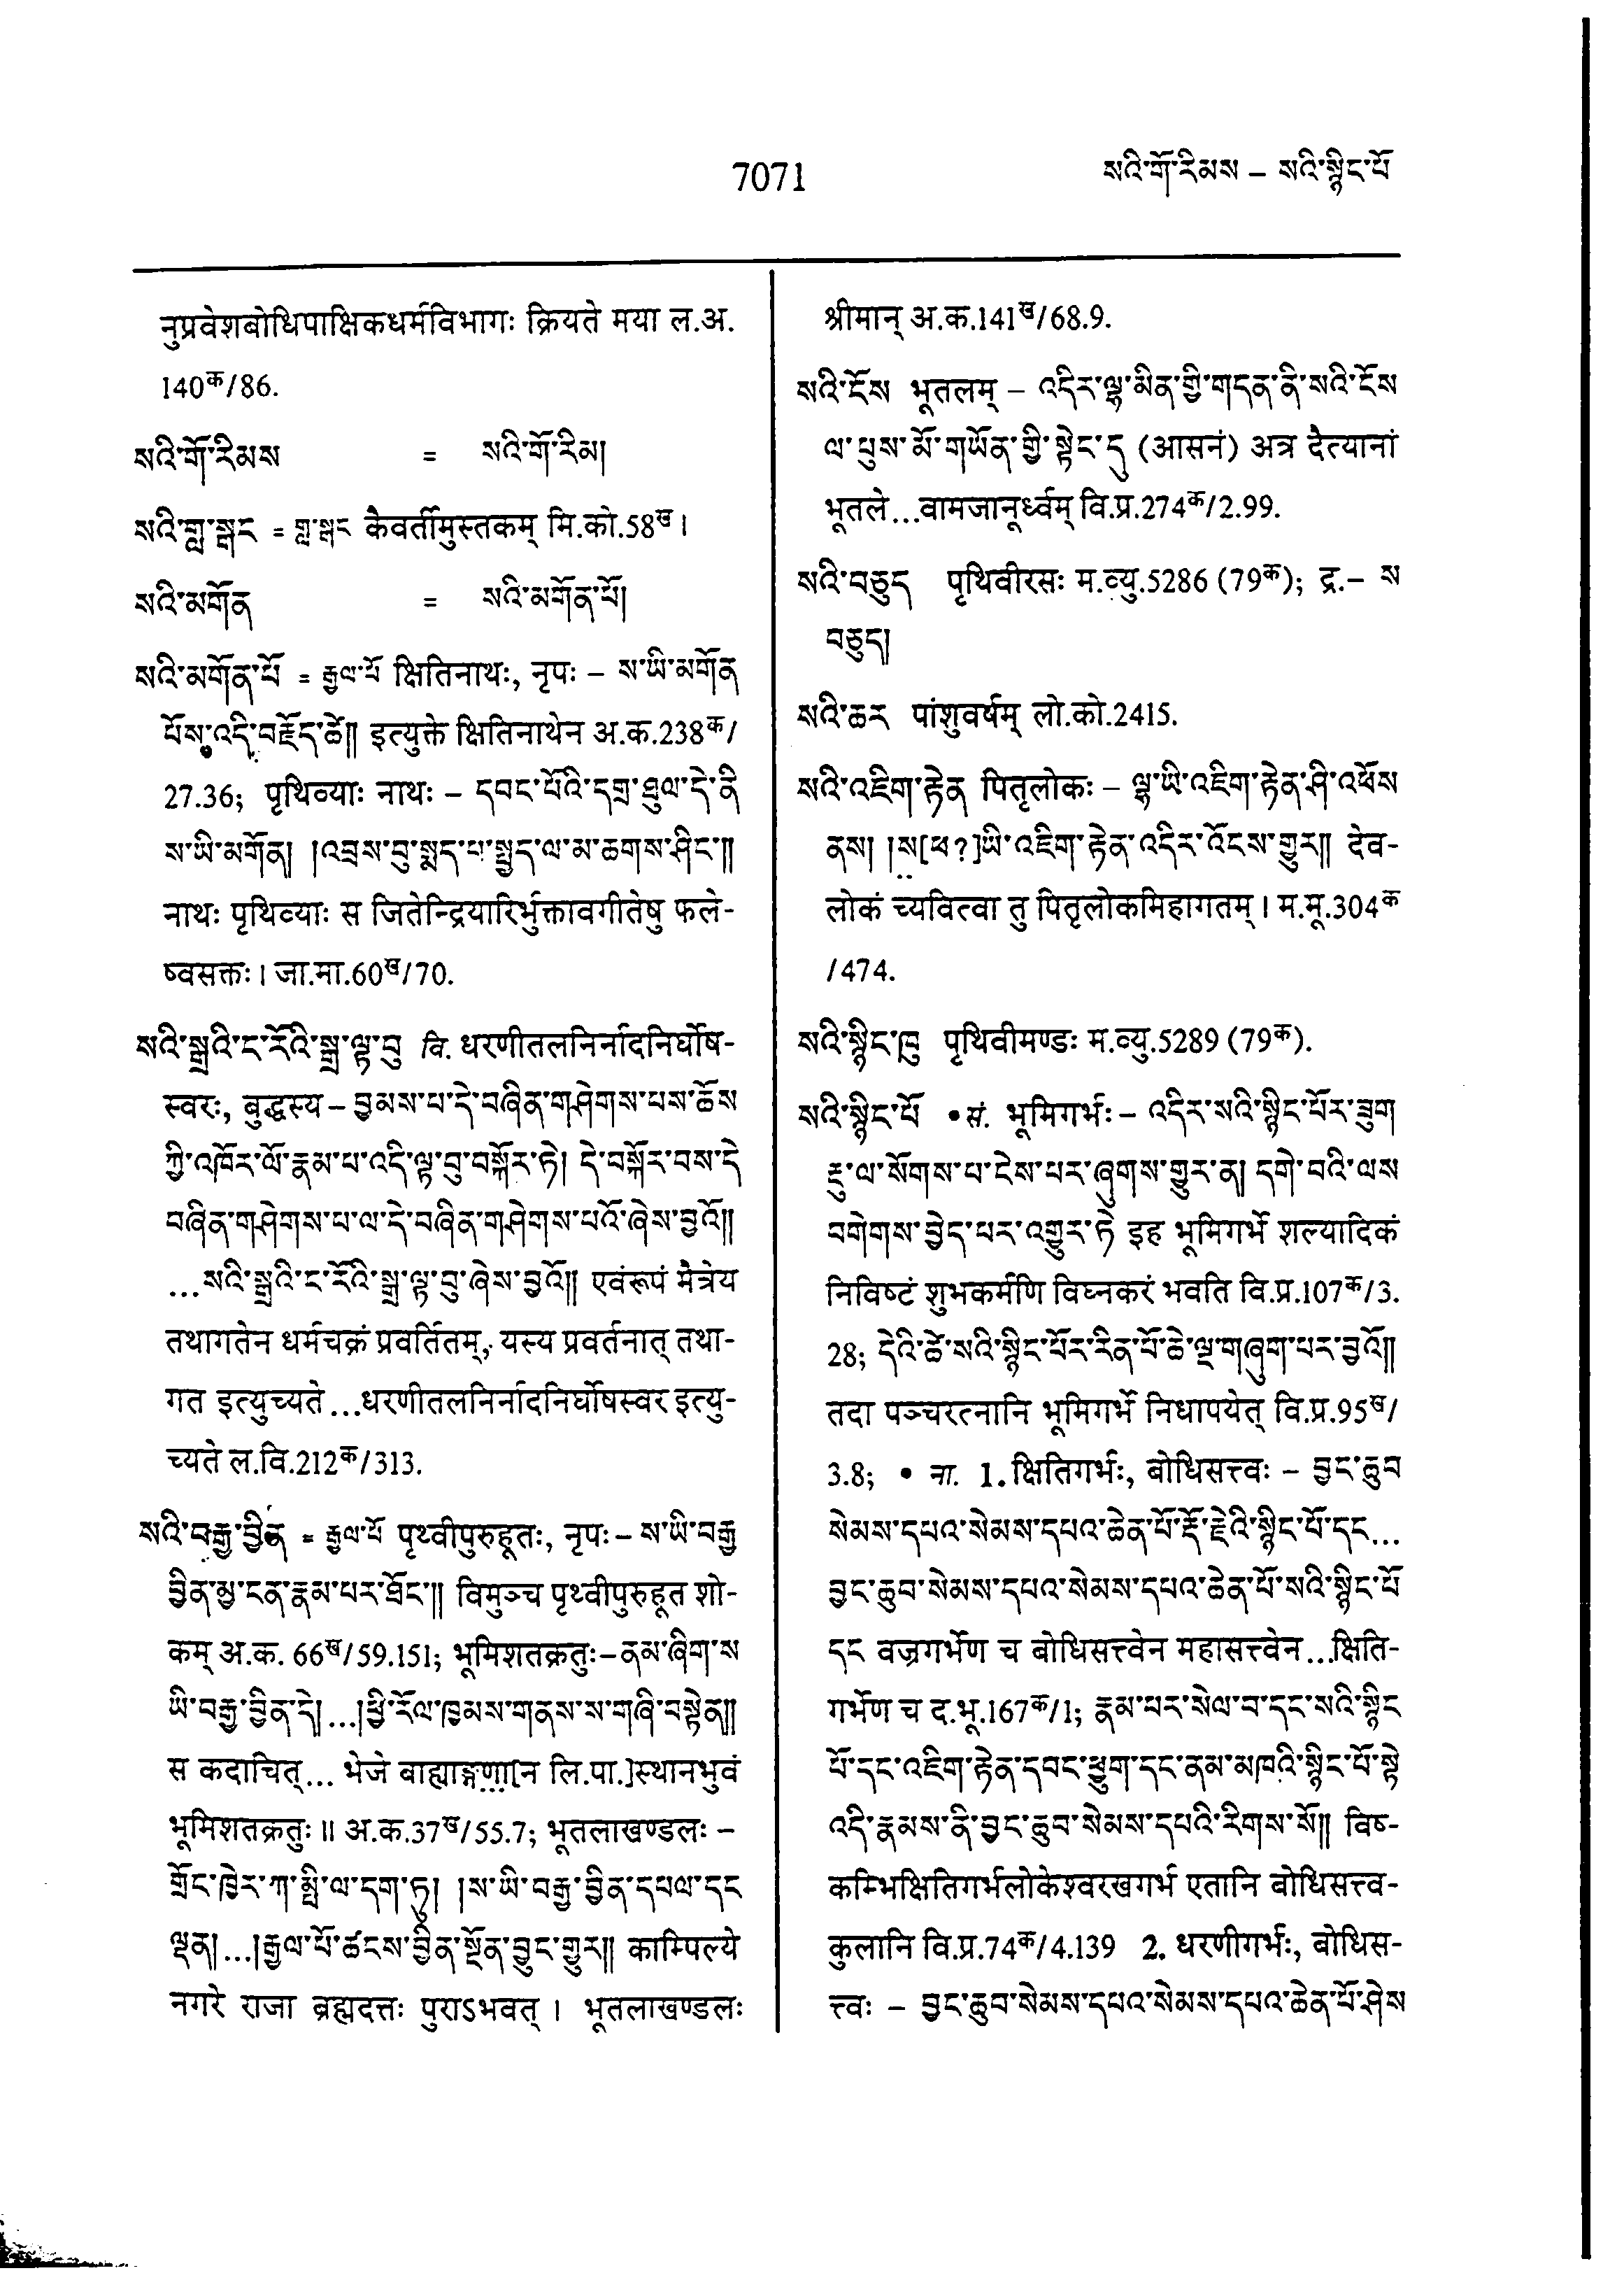 7071
སའི་གོ་རིམས – སའི་སྙིང་པོ
नुप्रवेशबोधिपाक्षिकधर्मविभागः क्रियते मया ल.अ.
140क/86.
སའི་གོ་རིམས = སའི་གོ་རིམ།
སའི་གླ་སྒང = གླ་སྒང कैवर्तीमुस्तकम् मि.को.58ख।
སའི་མགོན = སའི་མགོན་པོ།
སའི་མགོན་པོ = རྒྱལ་པོ क्षितिनाथः, नृपः – ས་ཡི་མགོན
པོས་འདི་བརྗོད་ཚེ༎ इत्युक्ते क्षितिनाथेन अ.क.238क/
27.36; पृथिव्याः नाथः – དབང་པོའི་དགྲ་ཐུལ་དེ་ནི
ས་ཡི་མགོན། །འབྲས་བུ་སྨད་པ་སྤྱད་ལ་མ་ཆགས་ཤིང་༎
नाथः पृथिव्याः स जितेन्द्रियारिर्भुक्तावगीतेषु फले-
ष्वसक्तः। जा.मा.60ख/70.
སའི་སྒྲའི་ང་རོའི་སྒྲ་ལྟ་བུ वि. धरणीतलनिर्नादनिर्घोष-
स्वरः, बुद्धस्य – བྱམས་པ་དེ་བཞིན་གཤེགས་པས་ཆོས
ཀྱི་འཁོར་ལོ་རྣམ་པ་འདི་ལྟ་བུ་བསྐོར་ཏེ། དེ་བསྐོར་བས་དེ
བཞིན་གཤེགས་པ་ལ་དེ་བཞིན་གཤེགས་པའོ་ཞེས་བྱའོ༎
...སའི་སྒྲའི་ང་རོའི་སྒྲ་ལྟ་བུ་ཞེས་བྱའོ༎ एवंरूपं मैत्रेय
तथागतेन धर्मचक्रं प्रवर्तितम्, यस्य प्रवर्तनात् तथा-
गत इत्युच्यते...धरणीतलनिर्नादनिर्घोषस्वर इत्यु-
च्यते ल.वि.212क/313.
སའི་བརྒྱ་བྱིན = རྒྱལ་པོ पृथ्वीपुरुहूतः, नृपः – ས་ཡི་བརྒྱ
བྱིན་མྱ་ངན་རྣམ་པར་ཐོང་༎ विमुञ्च पृथ्वीपुरुहूत शो-
कम् अ.क. 66ख/59.151; भूमिशतक्रतुः – ནམ་ཞིག་ས
ཡི་བརྒྱ་བྱིན་དེ། ...།ཕྱི་རོལ་ཁྱམས་གནས་ས་གཞི་བསྟེན༎
स कदाचित्... भेजे बाह्याङ्गणा[न लि.पा.]स्थानभुवं
भूमिशतक्रतुः॥ अ.क.37ख/55.7; भूतलाखण्डलः –
གྲོང་ཁྱེར་ཀ་མྤི་ལ་དག་ཏུ། །ས་ཡི་བརྒྱ་བྱིན་དཔལ་དང
ལྡན། ...།རྒྱལ་པོ་ཚངས་བྱིན་སྔོན་བྱུང་གྱུར༎ काम्पिल्ये
नगरे राजा ब्रह्मदत्तः पुराऽभवत्। भूतलाखण्डलः
श्रीमान् अ.क.141ख/68.9.
སའི་ངོས भूतलम् – འདིར་ལྷ་མིན་གྱི་གདན་ནི་སའི་ངོས
ལ་པུས་མོ་གཡོན་གྱི་སྟེང་དུ (आसनं) अत्र दैत्यानां
भूतले...वामजानूर्ध्वम् वि.प्र.274क/2.99.
སའི་བཅུད पृथिवीरसः म.व्यु.5286 (79क); द्र.– ས
བཅུད།
སའི་ཆར पांशुवर्षम् लो.को.2415.
སའི་འཇིག་རྟེན पितृलोकः – ལྷ་ཡི་འཇིག་རྟེན་ཤི་འཕོས
ནས། །ས[ཕ?]ཡི་འཇིག་རྟེན་འདིར་འོངས་གྱུར༎ देव-
लोकं च्यवित्वा तु पितृलोकमिहागतम्। म.मू.304क
/474.
སའི་སྙིང་ཁུ पृथिवीमण्डः म.व्यु.5289 (79क).
སའི་སྙིང་པོ • सं. भूमिगर्भः – འདིར་སའི་སྙིང་པོར་ཟུག
རྔུ་ལ་སོགས་པ་ངེས་པར་ཞུགས་གྱུར་ན། དགེ་བའི་ལས
བགེགས་བྱེད་པར་འགྱུར་ཏེ इह भूमिगर्भे शल्यादिकं
निविष्टं शुभकर्मणि विघ्नकरं भवति वि.प्र.107क/3.
28; དེའི་ཚེ་སའི་སྙིང་པོར་རིན་པོ་ཆེ་ལྔ་གཞུག་པར་བྱའོ༎
तदा पञ्चरत्नानि भूमिगर्भे निधापयेत् वि.प्र.95ख/
3.8; • ना. 1. क्षितिगर्भः, बोधिसत्त्वः – བྱང་ཆུབ
སེམས་དཔའ་སེམས་དཔའ་ཆེན་པོ་རྡོ་རྗེའི་སྙིང་པོ་དང...
བྱང་ཆུབ་སེམས་དཔའ་སེམས་དཔའ་ཆེན་པོ་སའི་སྙིང་པོ
དང वज्रगर्भेण च बोधिसत्त्वेन महासत्त्वेन...क्षिति-
गर्भेण च द.भू.167क/1; རྣམ་པར་སེལ་བ་དང་སའི་སྙིང
པོ་དང་འཇིག་རྟེན་དབང་ཕྱུག་དང་ནམ་མཁའི་སྙིང་པོ་སྟེ
འདི་རྣམས་ནི་བྱང་ཆུབ་སེམས་དཔའི་རིགས་སོ༎ विष्-
कम्भिक्षितिगर्भलोकेश्वरखगर्भ एतानि बोधिसत्त्व-
कुलानि वि.प्र.74क/4.139 2. धरणीगर्भः, बोधिस-
त्त्वः – བྱང་ཆུབ་སེམས་དཔའ་སེམས་དཔའ་ཆེན་པོ་ཤེས